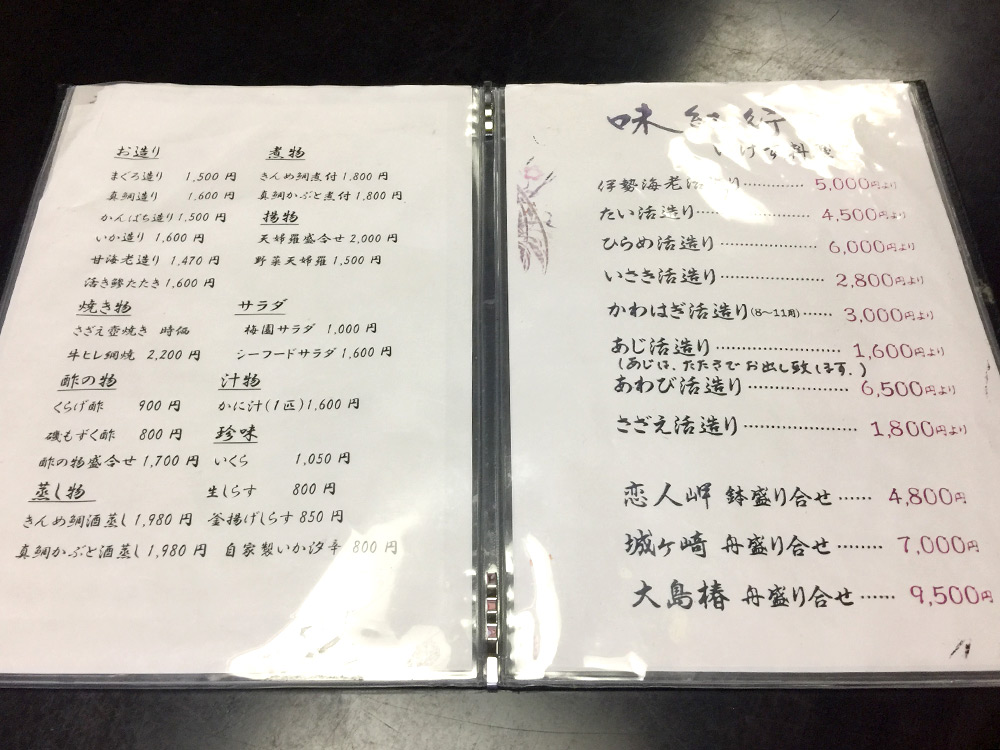 お造り
まぐろ造り 1,500 円
真鯛造り 1,600 円
かんぱち造り 1,500 円
いか造り 1,600 円
甘海老造り 1,470 円
活き鯵たたき 1,600 円
焼き物
さざえ壺焼き 時価
牛ヒレ網焼 2,200 円
酢の物
くらげ酢 900 円
磯もずく酢 800 円
酢の物盛合せ 1,700 円
蒸し物
きんめ鯛酒蒸し 1,980 円
真鯛かぶと酒蒸し 1,980 円
煮物
きんめ鯛煮付 1,800 円
真鯛かぶと煮付 1,800 円
揚物
天婦羅盛合せ 2,000 円
野菜天婦羅 1,500 円
サラダ
梅園サラダ 1,000 円
シーフードサラダ 1,600 円
汁物
かに汁(1匹) 1,600 円
珍味
いくら 1,050 円
生しらす 800 円
釜揚げしらす 850 円
自家製いか汐辛 800 円
味紀行
いけす料理
伊勢海老活造り………… 5,000円より
たい活造り…………… 4,500円より
ひらめ活造り…………… 6,000円より
いさき活造り…………… 2,800円より
かわはぎ活造り(8～11月)…… 3,000円より
あじ活造り………………… 1,600円より
(あじは、たたきでお出し致します。)
あわび活造り……………… 6,500円より
さざえ活造り……………… 1,800円より
恋人岬 鉢盛り合せ…… 4,800円
城ヶ崎 舟盛り合せ……… 7,000円
大島椿 舟盛り合せ…… 9,500円